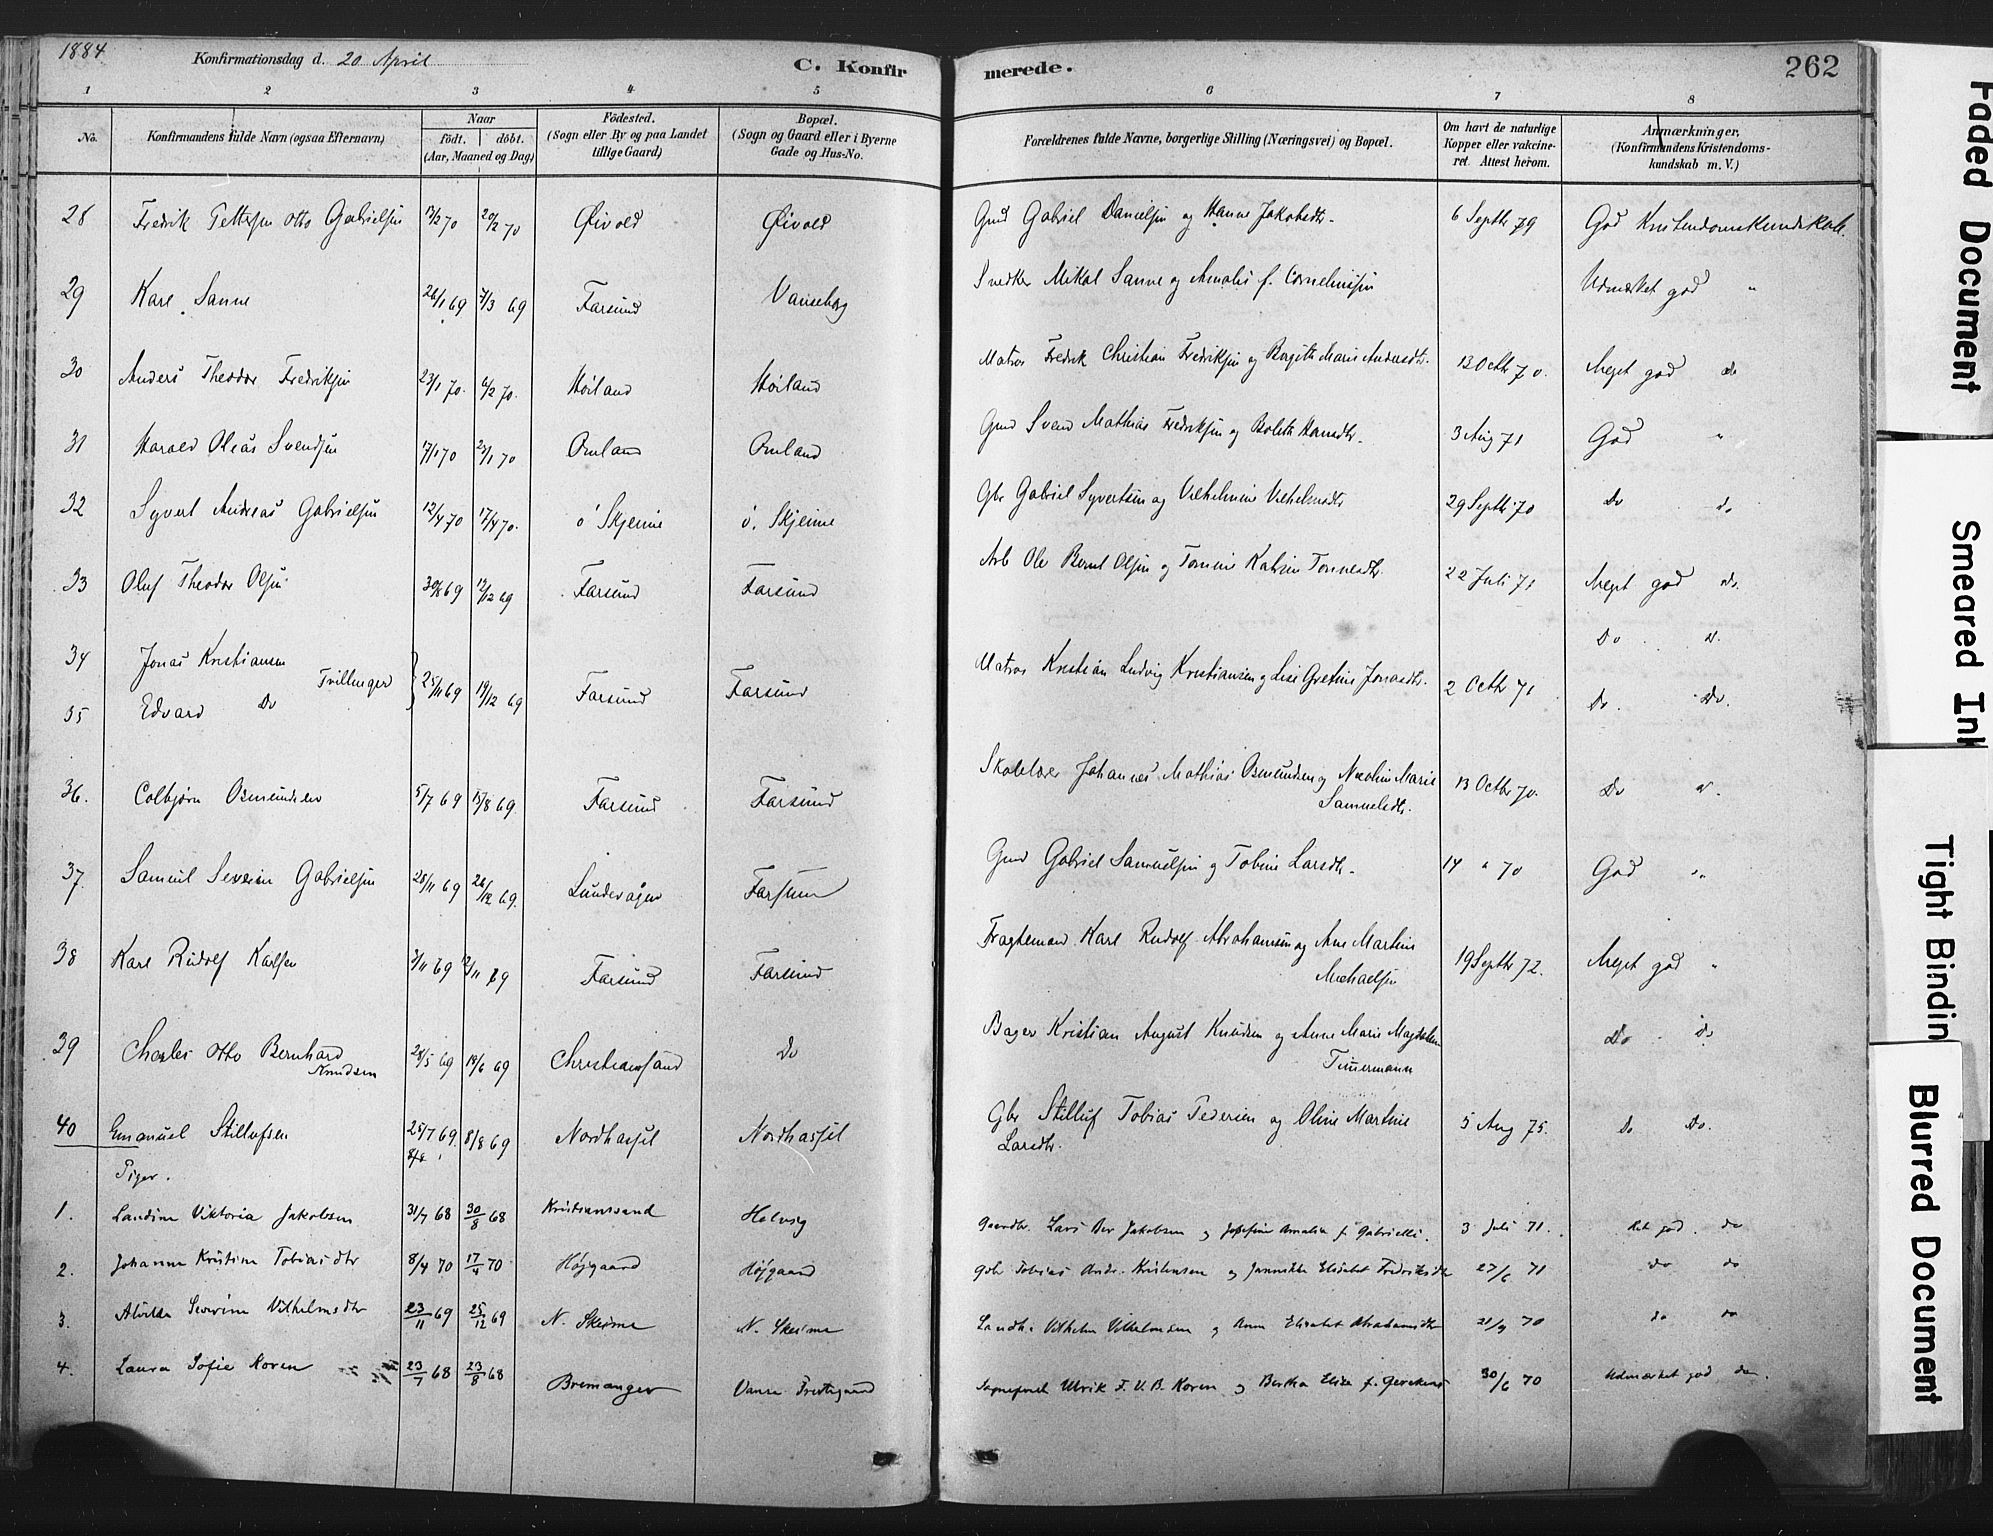 1884
Konfirmationsdag d. 20 April
C. Konfirmerede.
262
1 2 3 4 5 6 7 8
No.
Konfirmandens fulde Navn (ogsaa Efternavn)
Naar
födt. döbt.
(Aar, Maaned og Dag)
Födested.
(Sogn eller By og paa Landet
tillige Gaard)
Bopæl.
(Sogn og Gaard eller i Byerne
Gade og Hus-No.
Forældrenes fulde Navne, borgerlige Stilling (Næringsvei) og Bopæl.
Om havt de naturlige
Kopper eller vakcine-
ret. Attest herom.
Anmærkninger,
(Konfirmandens Kristendoms-
kundskab m. V.)
28 Fredrik Pettersen Otto Gabrielsen 13/2 70 20/2 70 Øivold Øivold Gmd Gabriel Danielsen og Hanne Jakobsdtr. 6 Septbr 79 God Kristendomskundskab.
29 Karl Sanne 26/1 69 7/3 69 Farsund Vanseborg Snedker Mikal Sanne og Amalie f. Corneliussen Udmærket god "
30 Anders Theodor Fredriksen 23/1 70. 6/2 70. Høiland Høiland Matros Fredrik Christian Fredriksen og Birgitte Marie Andersdtr. 13 Octbr 70. Meget god do
31 Harald Oleas Svendsen 17/1 70 23/1 70 Omland Omland Gmd Svend Mathias Fredriksen og Bolette Hansdtr. 3 Aug 71 God "
32 Syvert Andreas Gabrielsen 12/4 70 17/4 70. ö Skjeime ö. Skjeime Gbr Gabriel Syvertsen og Vilhelmine Vilhelmsdtr 29 Septbr 70 Do do
33 Oluf Theodor Olsen 30/8 69 12/12 69 Farsund Farsund Arb Ole Bernt Olsen og Tomine Katrine Tønnesdtr. 22 Juli 71 Meget god do.
34 Jonas Kristiansen Tvillinger 25/11 69 19/12 69 Farsund Farsund Matros Kristian Ludvig Kristiansen og Lise Gretine Jonasdtr. 2 Octbr 71 Do d.
35 Edvard Do Do. Do.
36. Colbjørn Osmundsen 5/7 69 15/8 69. Farsund Farsund Skolelærer Johannes Mathias Osmundsen og Nicoline Marie
Samuelsdtr. 13 Octbr 70. Do d.
37 Samuel Severin Gabrielsen 28/11 69 26/12 69. Lundevågen Farsund Gmd Gabriel Samuelsen og Tobine Larsdtr. 14 " 70 God "
38 Karl Rudolf Karlsen 3/11 69 12/11 69 Farsund Farsund Fragtemand Karl Rudolf Abrahamsen og Ane Martine
Michaelsen 19 Septbr 72. Meget god "
39 Charles Otto Bernhard
Knudsen 28/5 69 19/6 69 Christianssand Do Bager Kristian August Knudsen og Anne Marie Magdalen
Timmermann Do Do
40 Emanuel Stillufsen 25/7 69. 8/8 69 Nordhassel Nordhassel Gbr Stilluf Tobias Pedersen og Oline Martine
Larsdtr. 5 Aug 75. Do Do.
8/8
Piger.
1. Landine Viktoria Jakobsen 31/7 68 30/8 68 Kristianssand Holvig Gaardbr. Lars Ber Jakobsen og Josefine Amalia f. Gabrielli. 3 Juli 71. Ret god. do
2. Johanne Kristine Tobiasdtr 8/4 70 17/4 70 Højgaard Højgaard Gbr Tobias Andr. Kristensen og Jannikke Elisabet Fredriksdtr 27/6 71 do do
3. Alvilde Severine Vilhelmsdtr 23/11 69 25/12 69 N. Skeime N. Skeime Landh. Vilhelm Vilhelmsen og Anne Elisabet Abrahamsdtr 21/9 70 do do
4. Laura Sofie Koren 23/7 68 23/8 68 Bremanger Vanse Prestegaard Sogneprest Ulrik F. U. B. Koren og Bertha Elisa f. Gerckens 30/6 70 Udmærket god do.
Faded Document
Smeared Ink
Tight Bindin
Blurred Document